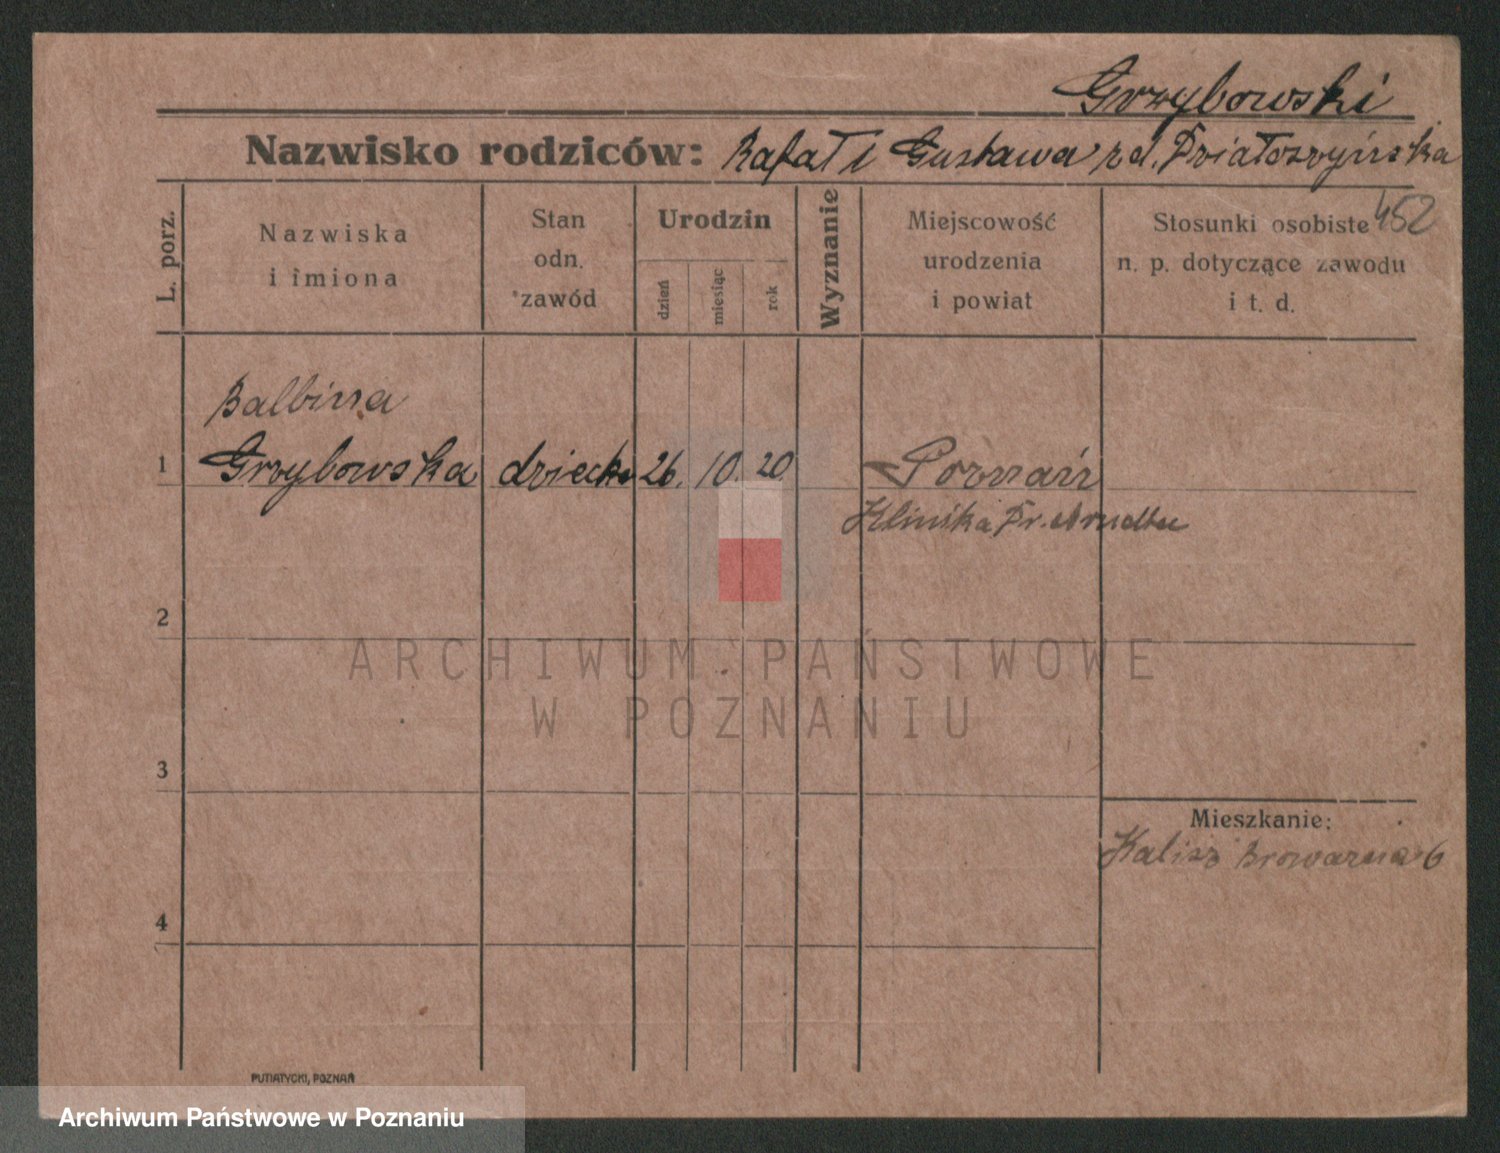 Grzybowski
Nazwisko rodziców: Rafał i Gustawa zd. Działoszyńska
452
L. porz.
Nazwiska
i imiona
Stan
odn.
zawód
Urodzin
dzień
miesiąc
rok
Wyznanie
Miejscowość
urodzenia
i powiat
Stosunki osobiste
n. p. dotyczące zawodu
i t. d.
Balbina
1 Grzybowska dziecko 26. 10. 20. Poznań
Klinika Dr.
2
ARCHIWUM PAŃSTWOWE
W POZNANIU
3
Mieszkanie:
Kalisz Browarna 6
4
PUTIATYCKI, POZNAŃ
Archiwum Państwowe w Poznaniu